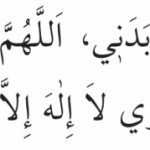 بَدَنِي، اَللَّهُمَّ
لاَ إِلٰهَ إِلاَّ